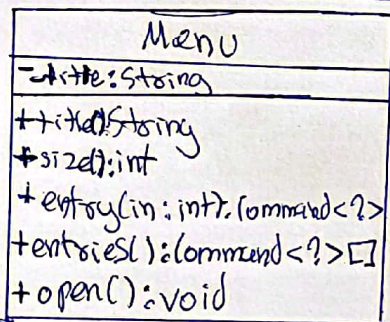 Menu
-title:String
+title():String
+size():int
+entry(in:int):Command<?>
+entries():Command<?>[]
+open():void